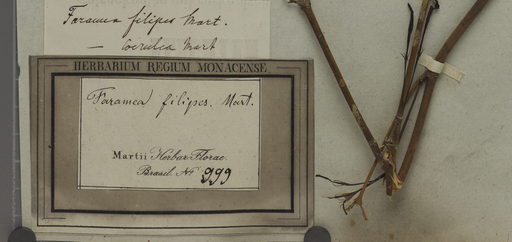 Faramea filipes Mart.
— coerulea Mart
HERBARIUM REGIUM MONACENSE.
Faramea filipes. Mart.
Martii Herbar. Florae
Brasil. No 999